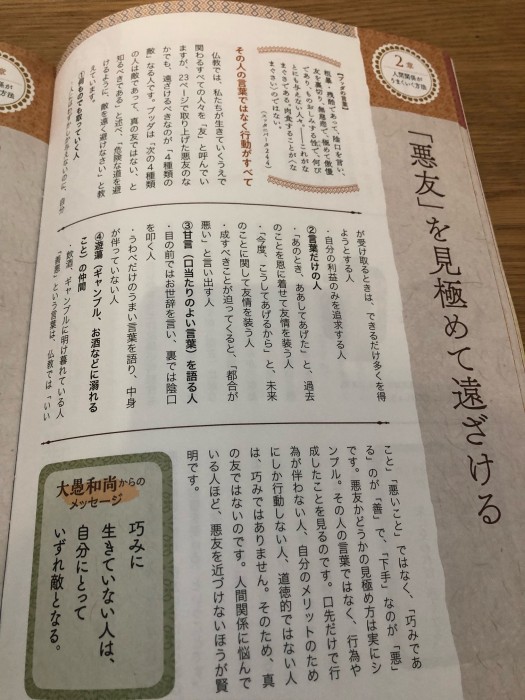 2章
人間関係が
うまくいく方法
「悪友」を見極めて遠ざける
【ブッダの言葉】
粗暴・残酷であって、陰口を言い、
友を裏切り、無慈悲で、極めて傲慢
であり、ものおしみする性で、何び
とにも与えない人々――これがな
まぐさである。肉食することが〈な
まぐさい〉のではない。
(スッタニパータ244)
その人の言葉ではなく行動がすべて
仏教では、私たちが生きていくうえで
関わるすべての人々を「友」と呼んでい
ますが、23ページで取り上げた悪友のな
かでも、遠ざけるべきなのが「4種類の
敵」なる人です。ブッダは「次の4種類
の人は敵であって、真の友ではない、と
知るべきである」と述べ、「危険な道を避
けるように、敵を遠く避けなさい」と教
えています。
①何ものでも取っていく人
が受け取るときは、できるだけ多くを得
ようとする人
・自分の利益のみを追求する人
②言葉だけの人
・「あのとき、ああしてあげた」と、過去
のことを恩に着せて友情を装う人
・「今度、こうしてあげるから」と、未来
のことに関して友情を装う人
・成すべきことが迫ってくると、「都合が
悪い」と言い出す人
③甘言(口当たりのよい言葉)を語る人
・目の前ではお世辞を言い、裏では陰口
を叩く人
・うわべだけのうまい言葉を語り、中身
が伴っていない人
④遊蕩(ギャンブル、お酒などに溺れる
こと)の仲間
・飲酒、ギャンブルに明け暮れている人
「善悪」という言葉は、仏教では「いい
こと」「悪いこと」ではなく、「巧みであ
る」のが「善」で、「下手」なのが「悪」
です。悪友かどうかの見極め方は実にシ
ンプル。その人の言葉ではなく、行為や
成したことを見るのです。口先だけで行
為が伴わない人、自分のメリットのため
にしか行動しない人、道徳的ではない人
は、巧みではありません。そのため、真
の友ではないのです。人間関係に悩んで
いる人ほど、悪友を近づけないほうが賢
明です。
大愚和尚からの
メッセージ
巧みに
生きていない人は、
自分にとって
いずれ敵となる。